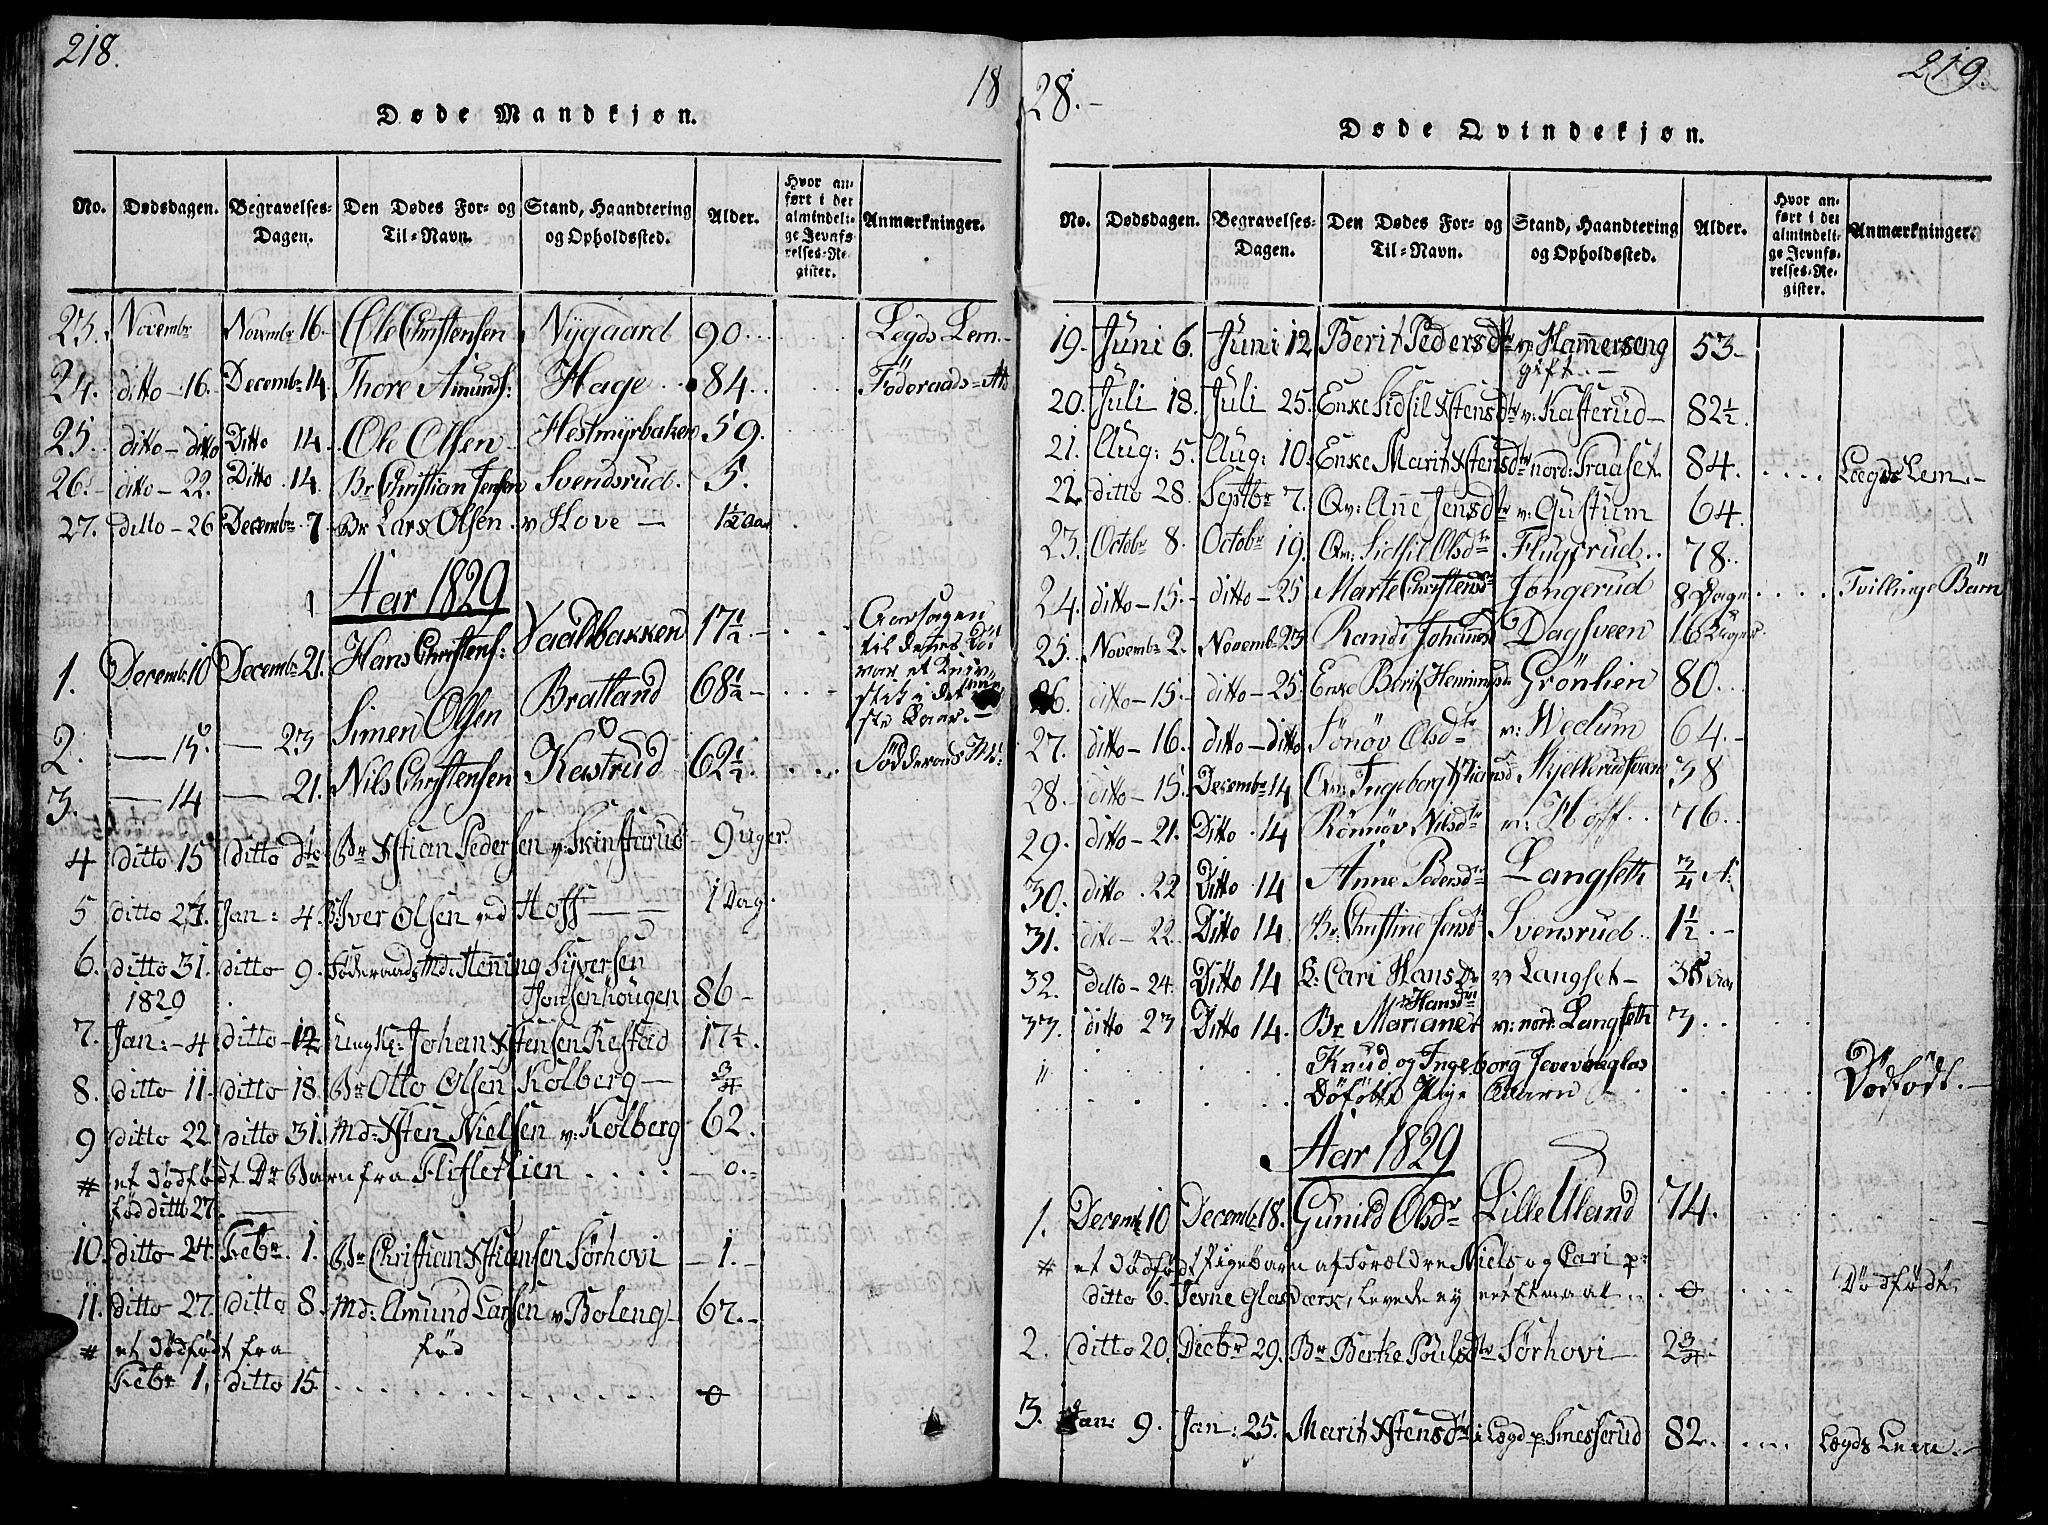 218.
18
Døde Mandkjøn.
No. Dødsdagen. Begravelses-Dagen. Den Dødes For- og Til-Navn. Stand, Haandtering og Opholdssted. Alder. Hvor anført i det almindelige Jevnførelses-Register. Anmærkninger.
23. Novembr Novembr 16. Ole Christensen Nygaard 90. Legds Lem.
24. ditto - 16. Decembr 14 Thore Amunds: Hage 84. Föderaads-
25. ditto - ditto Ditto 14. Ole Olsen Hestmyrbakken 59.
26. ditto - 22. Ditto 14. Br Christian Jensen Svendsrud. 5.
27. ditto - 26 Decembr 7 Br Lars Olsen v Hove - 1½ Aar
Aar 1829
1. Decembr 10 Decembr 21. Hans Christens: Vaalbakken 17½ - Aarsagen til dets var et i det
2. — 15. — 23 Simen Olsen Bratland 68½ -
3. — 14 — 21. Nils Christensen Kastrud 62½. Födderaads M:
4 ditto 15 ditto dto Br Xstian Pedersen v: Skinstarud 9 uger.
5 ditto 23. Jan: 4. Iver Olsen ved Hoff — 1 Dag.
6. ditto 31. ditto 9. Föderaads Md: Henning Syversen
1829 Jonsenhougen 86 -
7. Jan: - 4 ditto - 12 Ung K: Johan Xstensen Kestad 17½.
8. ditto 11 ditto 18. Br Otto Olsen Kolberg — ¾
9 ditto 22. ditto 31. Md: Xsten Nielsen v: Kolberg 62.
# et dödfödt Barn fra Flisetlien - 0. -
föd ditto 27. —
10. ditto 24. Febr. 1. Br Christian Xstiansen Sörhovi - 1. -
11. ditto 27. ditto 8. Md: Amund Larsen v: Boleng - 67. -
# et dödfödt fra föd
Febr 1. ditto 15. 0
28. -
219.
Døde Qvindekjøn.
No. Dødsdagen. Begravelses-Dagen. Den Dødes For- og Til-Navn. Stand, Haandtering og Opholdssted. Alder. Hvor anført i det almindelige Jevnførelses-Register. Anmærkninger.
19. Juni 6. Juni 12 Berit Pedersdtr v: Hamerseng 53 -
gift. -
20. Juli 18. Juli 25. Enke Sidsil Xstensdtr v: Kasterud - 82½.
21. Aug: 5. Aug: 10. Enke Marit Xstensdtr nord: Traaset 84. Lægds Lem. -
22 ditto 28. Septbr 7. Qv: Anne Jensdtr v: Gustum 64.
23. Octobr 8. Octobr 19. Qv: Sidsil Olsdtr Flugsrud. 78.
24. ditto - 15. - ditto - 25 Marte Christensdr Jongerud 8 Dage Tvillinge Barn
25. Novembr 2. Novembr 23 Randi Johannsd Dagsveen 16 Uger.
26. ditto - 15. - ditto - 25. Enke Berit Heningsdr Grönlien 80.
27. ditto - 16. ditto - ditto Sönöv Olsdtr v: Wedum 64. -
28. ditto - 15. Decembr 14 Qv: Ingeborg Xstiansd Skjellerudsveen 38
29. ditto - 21. Ditto 14 Rönnöv Nilsdtr v: Hoff. 76.
30. ditto 22 Ditto 14 Anne Pedersdtr Langseth ¾ A:
31. ditto - 22. Ditto 14. Br: Christine Jensdtr Svensrud. 1½. -
32. ditto - 24. Ditto 14 Cari Hansdtr v Langset -
33. ditto 23 Ditto 14. Br Mariane Hansdtr v: nort. Langseth 3.
" Knud og Ingeborg
Pige Barn Dödfödt. -
Aar 1829
1. Decembr 10 Decembr 18. Gunild Olsdr Lille Uland 74.
# et dödfödt Pigebarn af Forældre Niels og Cari p:
ditto 6. Jevne Glasværk, levede ey et Etmaal 0 Dödfödt
2. ditto 20. Decbr 29. Br Berthe Poulsdtr Sörhovi 2¾.
3. Jan: 9. Jan: 25. Marit Xstensdtr i Lægd p: Smesserud 82. Lægds Lem. -